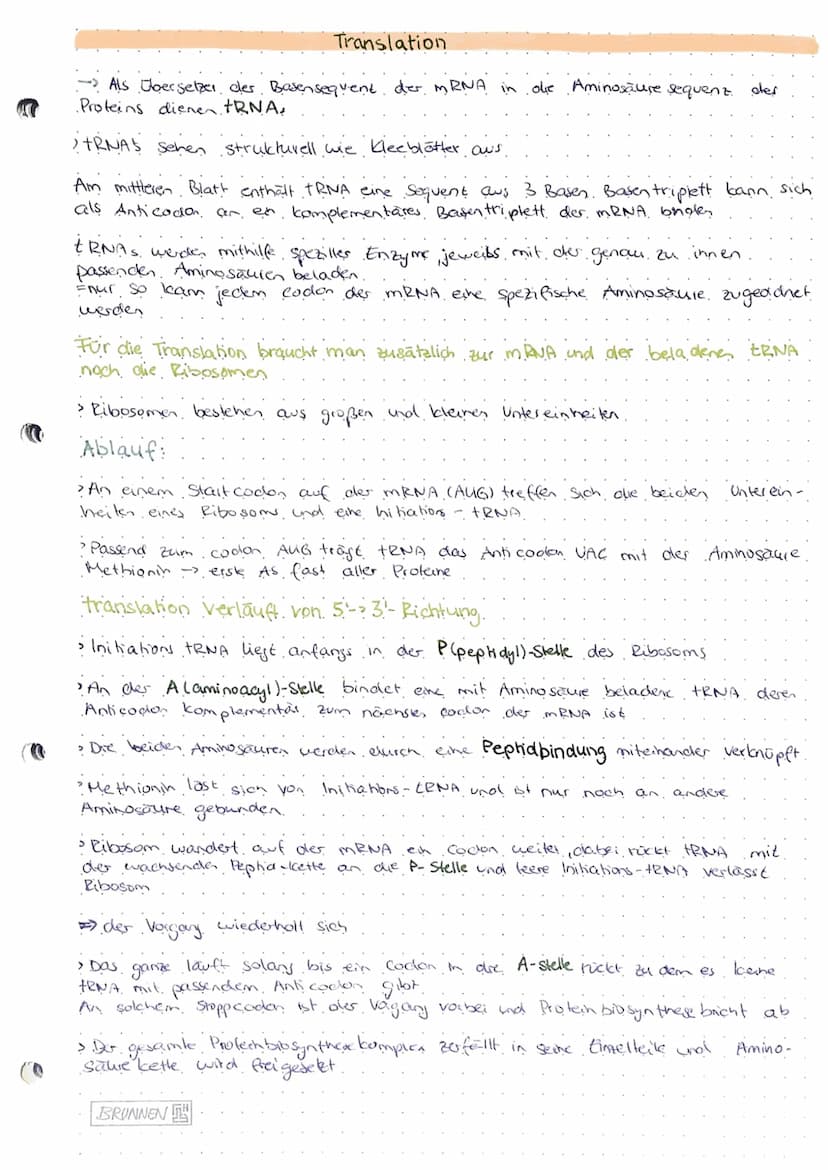 Translation
→ Als Übersetzer der Basensequent der mRNA in die Aminosäuresequenz des
Proteins dienen tRNAs
> tRNA's sehen strukturell wie Kleeblätter aus
Am mittleren Blatt enthält tRNA eine Sequent aus 3 Basen. Basentriplett kann sich
als Anticodon an ein komplementäres Basentriplett der mRNA binden
tRNAs werden mithilfe speziller Enzyme jeweils mit der genau zu ihnen
passenden Aminosäuren beladen
=nur so kann jedem Codon der mRNA eine spezifische Aminosäure zugeordnet
werden
Für die Translation braucht man zusätzlich zur mRNA und der beladenen tRNA
noch die Ribosomen
> Ribosomen bestehen aus großen und kleinen Untereinheiten
Ablauf:
> An einem Startcodon auf der mRNA (AUG) treffen sich die beiden Unterein-
heiten eines Ribosoms und eine Initiations-tRNA
> Passend zum codon AUG trägt tRNA das Anticodon UAC mit der Aminosäure
Methionin → erste AS fast aller Proteine
translation verläuft von 5'->3'-Richtung
> Initiations tRNA liegt anfangs in der P(peptidyl)-Stelle des Ribosoms
> An der A(aminoacyl)-Stelle bindet eine mit Aminosäure beladene tRNA deren
Anticodon komplementär zum nächsten codon der mRNA ist
> Die beiden Aminosäuren werden durch eine Peptidbindung miteinander verknüpft
> Methionin löst sich von Initiations-tRNA und ist nur noch an andere
Aminosäure gebunden
> Ribosom wandert auf der mRNA ein Codon weiter, dabei rückt tRNA mit
der wachsenden Peptid-kette an die P-Stelle und leere Initiations-tRNA verlässt
Ribosom
=> der Vorgang wiederholt sich
> Das ganze läuft solang bis ein Codon in die A-Stelle rückt zu dem es keine
tRNA mit passendem Anticodon gibt
An solchem Stoppcodon ist der Vorgang vorbei und Proteinbiosynthese bricht ab
> Der gesamte Proteinbiosynthesekomplex zerfällt in seine Einzelteile und Amino-
säurekette wird freigesetzt
BRUNNEN